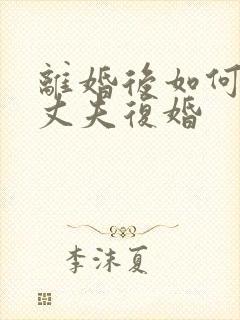 離婚後如何
丈夫復婚
李沫夏